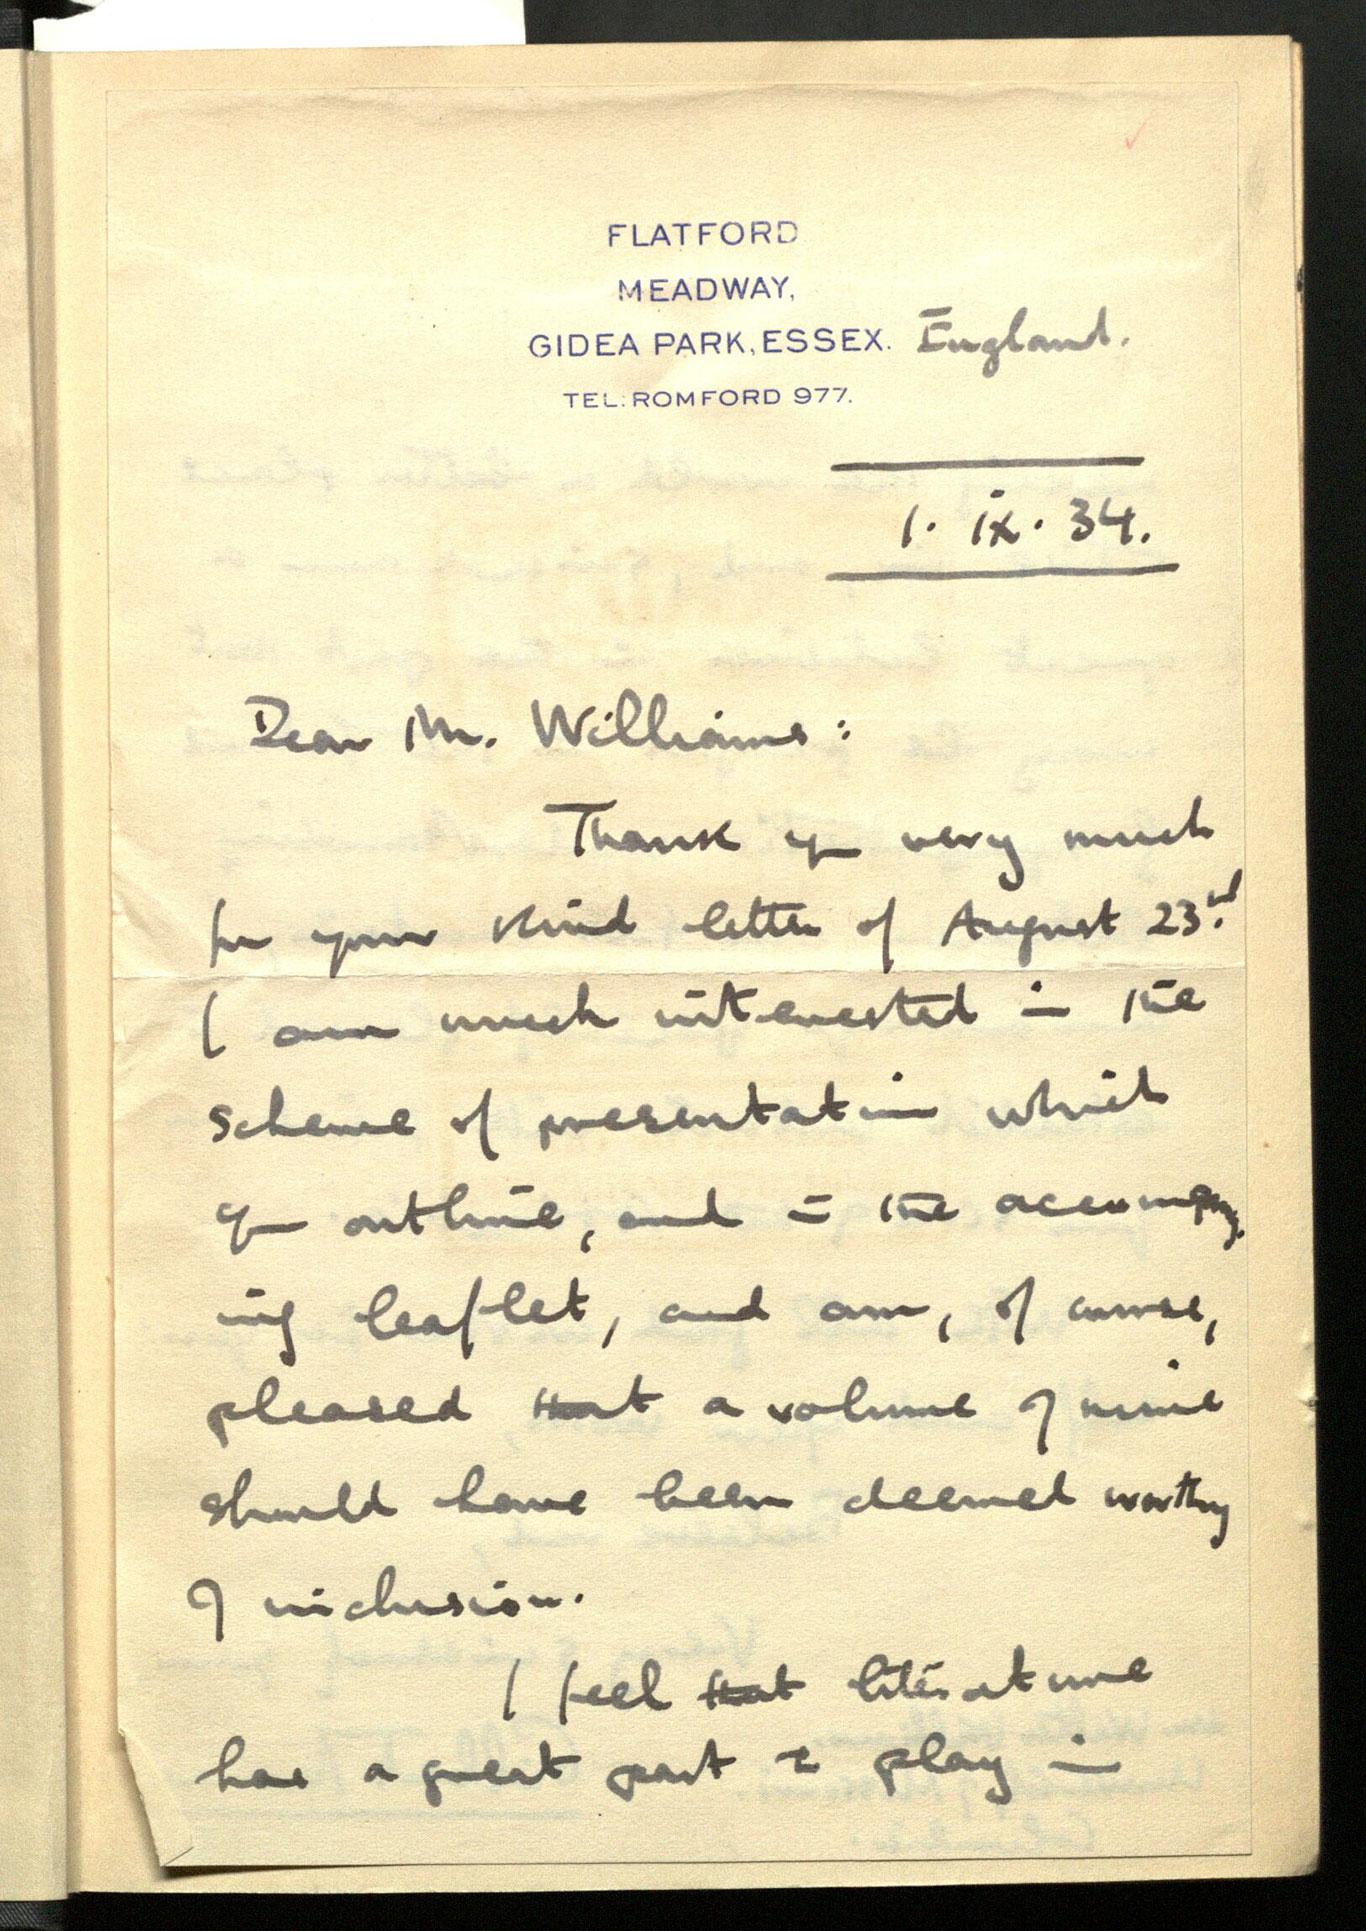 FLATFORD
MEADWAY,
GIDEA PARK, ESSEX. England.
TEL: ROMFORD 977.
1. ix. 34.
Dear Mr. Williams:
Thank you very much
for your kind letter of August 23rd.
I am much interested in the
scheme of presentation which
you outline, and in the accompany-
ing leaflet, and am, of course,
pleased that a volume of mine
should have been deemed worthy
of inclusion.
I feel that literature
has a great part to play in